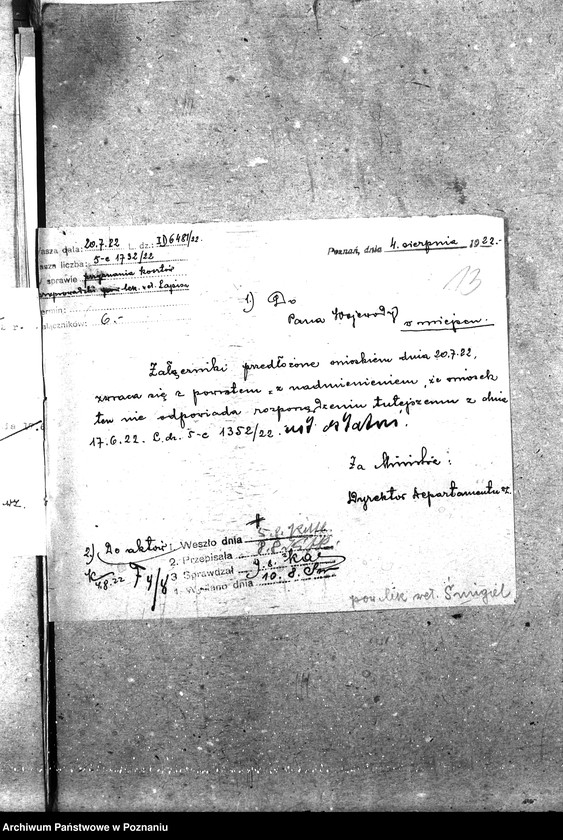 asza data: 20.7.22 L. dz.: ID 6481/22.
asza liczba: 5-c 1732/22
sprawie przyznania kosztów
pow. lek. wet. Łapisa
ermin:
ałączników: 6.-
Poznań, dnia 4. sierpnia 1922.-
13
1) Do
Pana Wojewody
w miejscu.
Załączniki przedłożone wnioskiem dnia 20.7.22,
zwraca się z powrotem z nadmienieniem, że wniosek
ten nie odpowiada rozporządzeniu tutejszemu z dnia
17.6.22. L. dz. 5-c 1352/22.
Za Ministra:
Dyrektor Departamentu
2) Do aktów
4.8.22
1. Weszło dnia 5.8.
2. Przepisała 8.8.
3 Sprawdzał 9.8.
4. Wysłano dnia 10.8.
pow. lek wet. Śmigiel
wz.
Archiwum Państwowe w Poznaniu